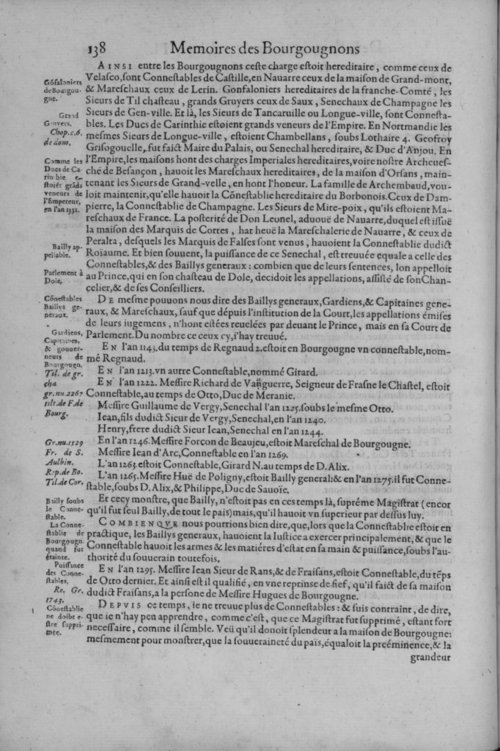 138 Memoires des Bourgougnons
AINSI entre les Bourgougnons ceste charge estoit hereditaire, comme ceux de
Velasco, sont Connestables de Castille, en Nauarre ceux de la maison de Grand-mont,
& Mareschaux ceux de Lerin. Gonfaloniers hereditaires de la franche-Comté, les
Sieurs de Til chasteau, grands Gruyers ceux de Saux, Senechaux de Champagne les
Sieurs de Gen-ville. Et là, les Sieurs de Tancaruille ou Longue-ville, sont Connesta-
bles. Les Ducs de Carinthie estoient grands veneurs de l'Empire. En Normandie les
mesmes Sieurs de Longue-ville, estoient Chambellans, soubs Lothaire 4. Geofroy
Grisogouelle, fut faict Maire du Palais, ou Senechal hereditaire, & Duc d'Anjou. En
l'Empire, les maisons hont des charges Imperiales hereditaires, voire nostre Archeues-
ché de Besançon, hauoit les Mareschaux hereditaires, de la maison d'Orsans, main-
tenant les Sieurs de Grand-velle, en hont l'honeur. La famille de Archembaud, vou-
loit maintenir, qu'elle hauoit la Cõnestablie hereditaire du Borbonois. Ceux de Dam-
pierre, la Connestablie de Champagne. Les Sieurs de Mire-poix, qu'ils estoient Ma-
reschaux de France. La posterité de Don Leonel, aduoüé de Nauarre, duquel est issuë
la maison des Marquis de Cortes, hat heuë la Mareschalerie de Nauarre, & ceux de
Peralta, desquels les Marquis de Falses sont venus, hauoient la Connestablie dudict
Roiaume. Et bien souuent, la puissance de ce Senechal, est treuuée equale a celle des
Connestables, & des Baillys generaux: combien que de leurs sentences, lon appelloit
au Prince, qui en son chasteau de Dole, decidoit les appellations, assisté de son Chan-
celier, & de ses Conseilliers.
DE mesme pouuons nous dire des Baillys generaux, Gardiens, & Capitaines gene-
raux, & Mareschaux, sauf que dépuis l'institution de la Court, les appellations émises
de leurs iugemens, n'hont estées reuelées par deuant le Prince, mais en sa Court de
Parlement. Du nombre de ceux cy, i'hay treuué.
EN l'an 1143. du temps de Regnaud 2. estoit en Bourgougne vn connestable, nom-
mé Regnaud.
EN l'an 1213. vn autre Connestable, nommé Girard.
EN l'an 1222. Messire Richard de Vanguerre, Seigneur de Frasne le Chastel, estoit
Connestable, au temps de Otto, Duc de Meranie.
Messire Guillaume de Vergy, Senechal l'an 1225. soubs le mesme Otto.
Iean, fils dudict Sieur de Vergy, Senechal, en l'an 1240.
Henry, frere dudict Sieur Iean, Senechal en l'an 1244.
En l'an 1246. Messire Forcon de Beaujeu, estoit Mareschal de Bourgougne.
Messire Iean d'Arc, Connestable en l'an 1269.
L'an 1263. estoit Connestable, Girard N. au temps de D. Alix.
L'an 1265. Messire Huë de Poligny, estoit Bailly general: & en l'an 1275. il fut Conne-
stable, soubs D. Alix, & Philippe, Duc de Sauoie.
Et cecy monstre, que Bailly, n'estoit pas en ces temps là, supréme Magistrat (encor
qu'il fut seul Bailly, de tout le païs) mais, qu'il hauoit vn superieur par dessus luy.
COMBIENQVE nous pourrions bien dire, que, lors que la Connestablie estoit en
practique, les Baillys generaux, hauoient la Iustice a exercer principalement, & que le
Connestable hauoit les armes & les matiéres d'estat en sa main & puissance, soubs l'au-
thorité du souuerain toutefois.
EN l'an 1295. Messire Iean Sieur de Rans, & de Fraisans, estoit Connestable, du tẽps
de Otto dernier. Et ainsi est il qualifié, en vne reprinse de fief, qu'il faict de sa maison
dudict Fraisans, a la persone de Messire Hugues de Bourgougne.
DEPVIS ce temps, ie ne treuue plus de Connestables: & suis contraint, de dire,
que ie n'hay pen apprendre, comme c'est, que ce Magistrat fut supprimé, estant fort
necessaire, comme il semble. Veü qu'il donoit splendeur a la maison de Bourgougne:
mesmement pour monstrer, que la souueraineté du païs, équaloit la preéminence, & la
grandeur
Gõfaloniers
de Bourgou-
gne.
Grand
Gruyers.
Chop. c. 6.
de dom.
Comme les
Ducs de Ca-
rin bie e-
stoiẽt grãds
veneurs de
l'Empereur,
en l'an 1351.
Bailly ap-
pellable.
Parlement a
Dole,
Cõnestables
Baillys ge-
neraux.
Gardiens,
Capitaines,
& gouuer-
neurs de
Bourgougn.
Til. de gr.
cha
gr. nu. 2267
Bourg.
Gr. nu. 1529
Fr. de S.
Aulbin.
Rep. de Bo.
Til. de Cor.
Bailly soubs
le Conne-
stable.
La Conne-
stablie de
Bourgougn.
quand fut
étainte.
Puissance
des Conne-
stables.
Re. Gr.
1743.
Cõnestablie
ne doibe e-
stre suppri-
mée.